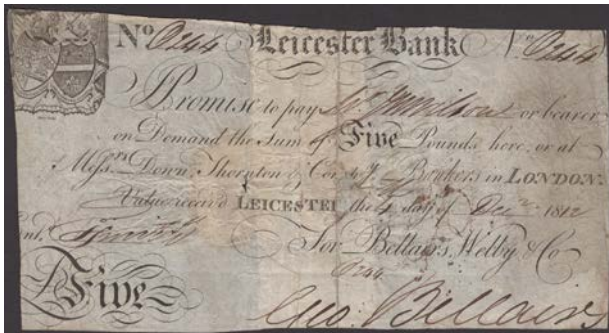 No O244 Leicester Bank No O244
I Promise to pay or bearer
on Demand the Sum of Five Pounds here, or at
Messrs Down, Thornton & Co Bankers in LONDON.
Value receiv'd LEICESTER the 4 day of Decr 1812
Ent.d For Bellairs, Welby & Co
O244
Five Geo. Bellairs